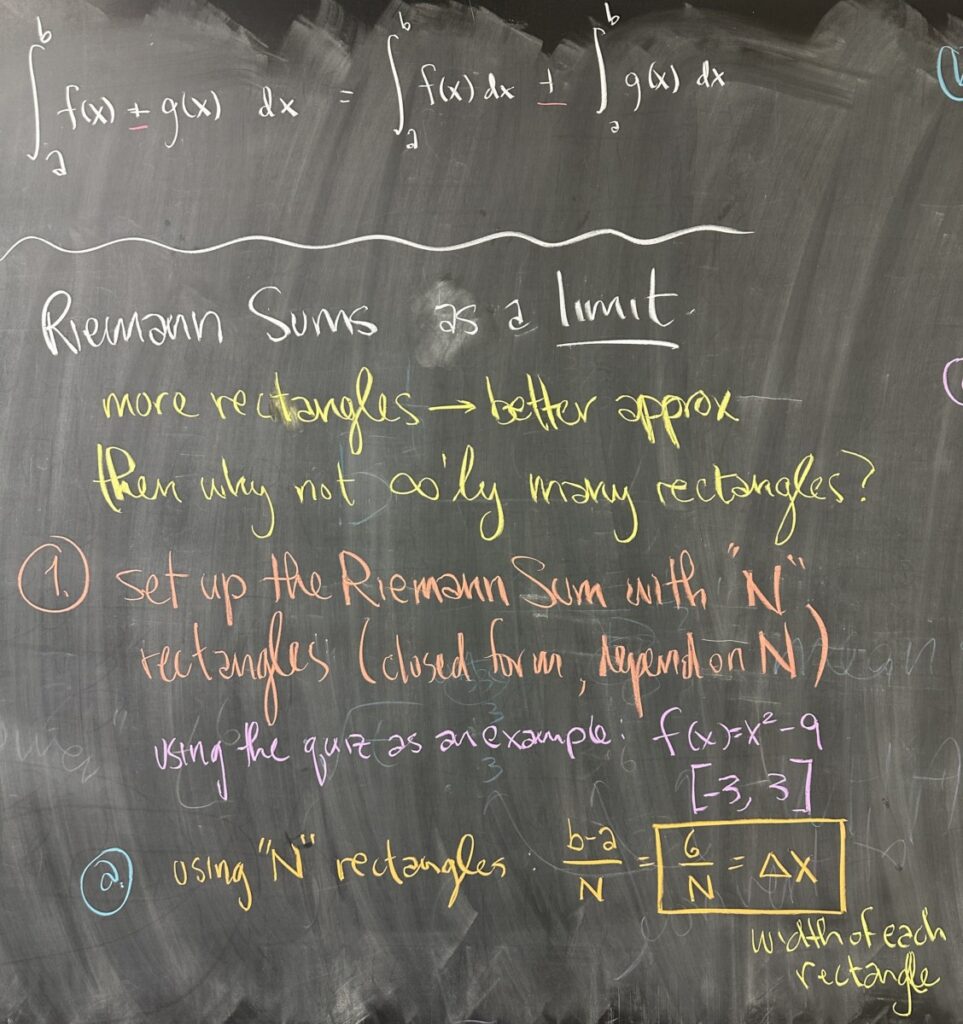 ∫_a^b f(x) ± g(x) dx = ∫_a^b f(x) dx ± ∫_a^b g(x) dx
Riemann Sums as a limit.
more rectangles → better approx
then why not ∞'ly many rectangles?
1. set up the Riemann Sum with "N"
rectangles (closed form, depend on N)
using the quiz as an example: f(x)=x²-9
[-3, 3]
a. using "N" rectangles : b-a/N = 6/N = Δx
width of each
rectangle